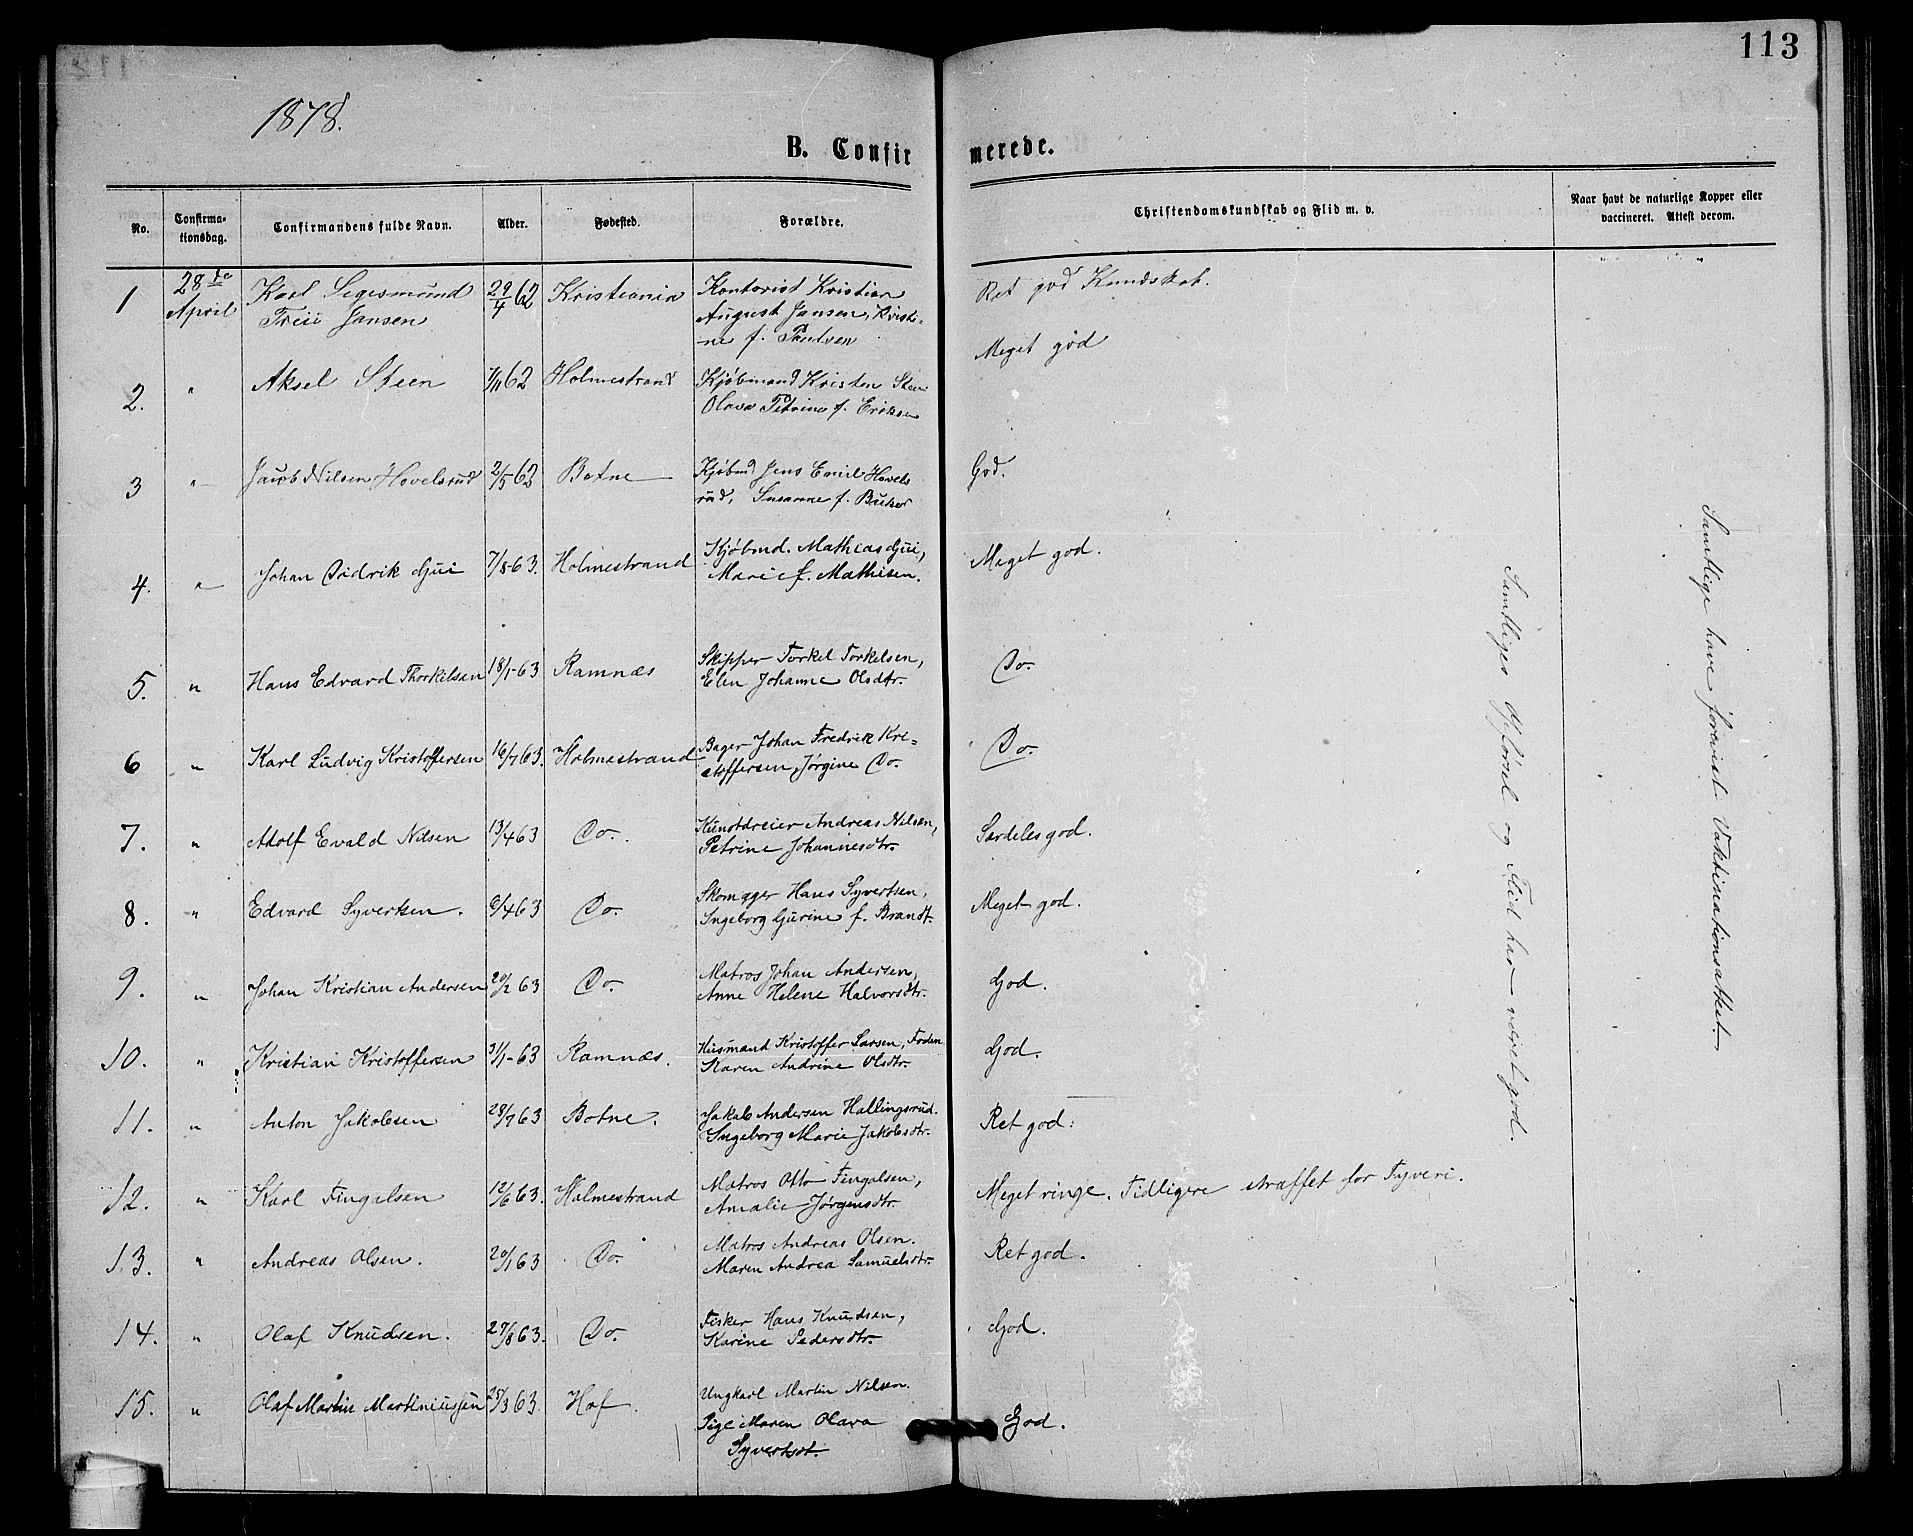 113
1878.
B. Confirmerede.
No.
Confirmationsdag.
Confirmandens fulde Navn.
Alder.
Fødested.
Forældre.
Christendomskundskab og Flid m. v.
Naar havt de naturlige Kopper eller vaccineret. Attest derom.
1 28de April Karl Segesmund 29/4 62 Kristiania Kontorist Kristian Ret god Kundskab.
Jansen August Jansen, Kristi-
-ne f. Paulsen
2. " Aksel Steen 62 Holmestrand Kjøbmand Kristen Steen Meget god
Olava Petrine f. Eriksen
3 " Jacob Nilsen Hovelsrud 2/5 62 Botne Kjøbmd Jens Emil Hovels God.
rud, Susanne f.
4. " Johan Didrik Gjui 7/8-63. Holmestrand Kjøbmd. Mathias Gjui, Meget god.
Marie f. Mathisen.
5. " Hans Edvard Thorkelsen 18/1-63 Ramnæs Skipper Torkel Torkelsen, Do.
Elen Johanne Olsdtr.
6 " Karl Ludvig Kristoffersen 16/7 63. Holmestrand Bager Johan Fredrik Kri- Do.
stoffersen, Jørgine Do.
7. " Adolf Evald Nilsen 13/4 63 Do. Kunstdreier Andreas Nilsen, Særdeles god.
Petrine Johannesdtr.
8. " Edvard Syvertsen. 6/4 63 Do. Skomager Hans Syvertsen, Meget god.
Ingeborg Gurine f. Brandt.
9. " Johan Kristian Andersen 20/2 63 Do. Matros Johan Andersen, God.
Anne Helene Halvorsdtr.
10. " Kristian Kristoffersen 31/1-63 Ramnæs. Husmand Kristoffer Larsen, Foden God.
Karen Andrine Olsdtr.
11. " Anton Jakobsen 28/7 63 Botne. Jakob Andersen Hallingsrud. Ret god.
Ingeborg Marie Jakobsdtr.
12. " Karl Fingalsen 12/6 63. Holmestrand Matros Otto Fingalsen, Meget ringe. Tidligere straffet for Tyveri.
Amalie Jørgensdtr.
13. " Andreas Olsen. 20/1 63 Do. Matros Andreas Olsen. Ret god.
Maren Andrea Samuelsdtr.
14. " Olaf Knudsen. 27/8 63. Do. Fisker Hans Knudsen, God.
Karine Pedersdtr.
15. " Olaf Martin Martiniussen 25/3 63. Hof. Ungkarl Martin Nilsen. God.
Pige Maren Olava
Syvertsdt.
Samtliges Opførsel og Flid har været god.
Samtlige have forevist Vaktinationsattest.